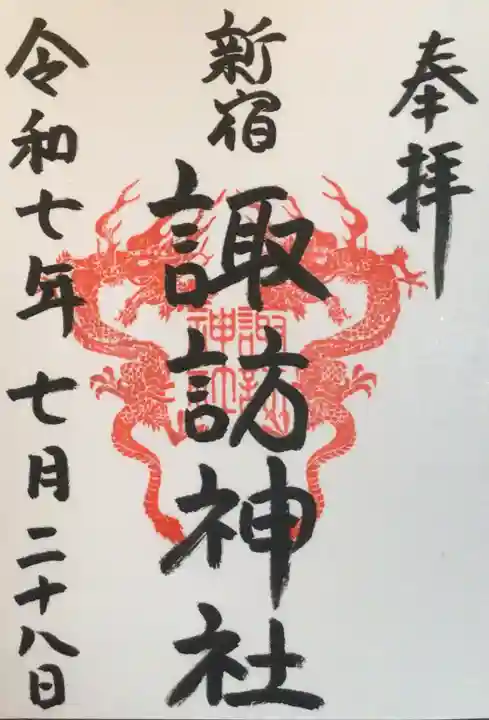 奉拝
新宿
諏訪神社
諏訪
神社
令和七年 七月二十八日